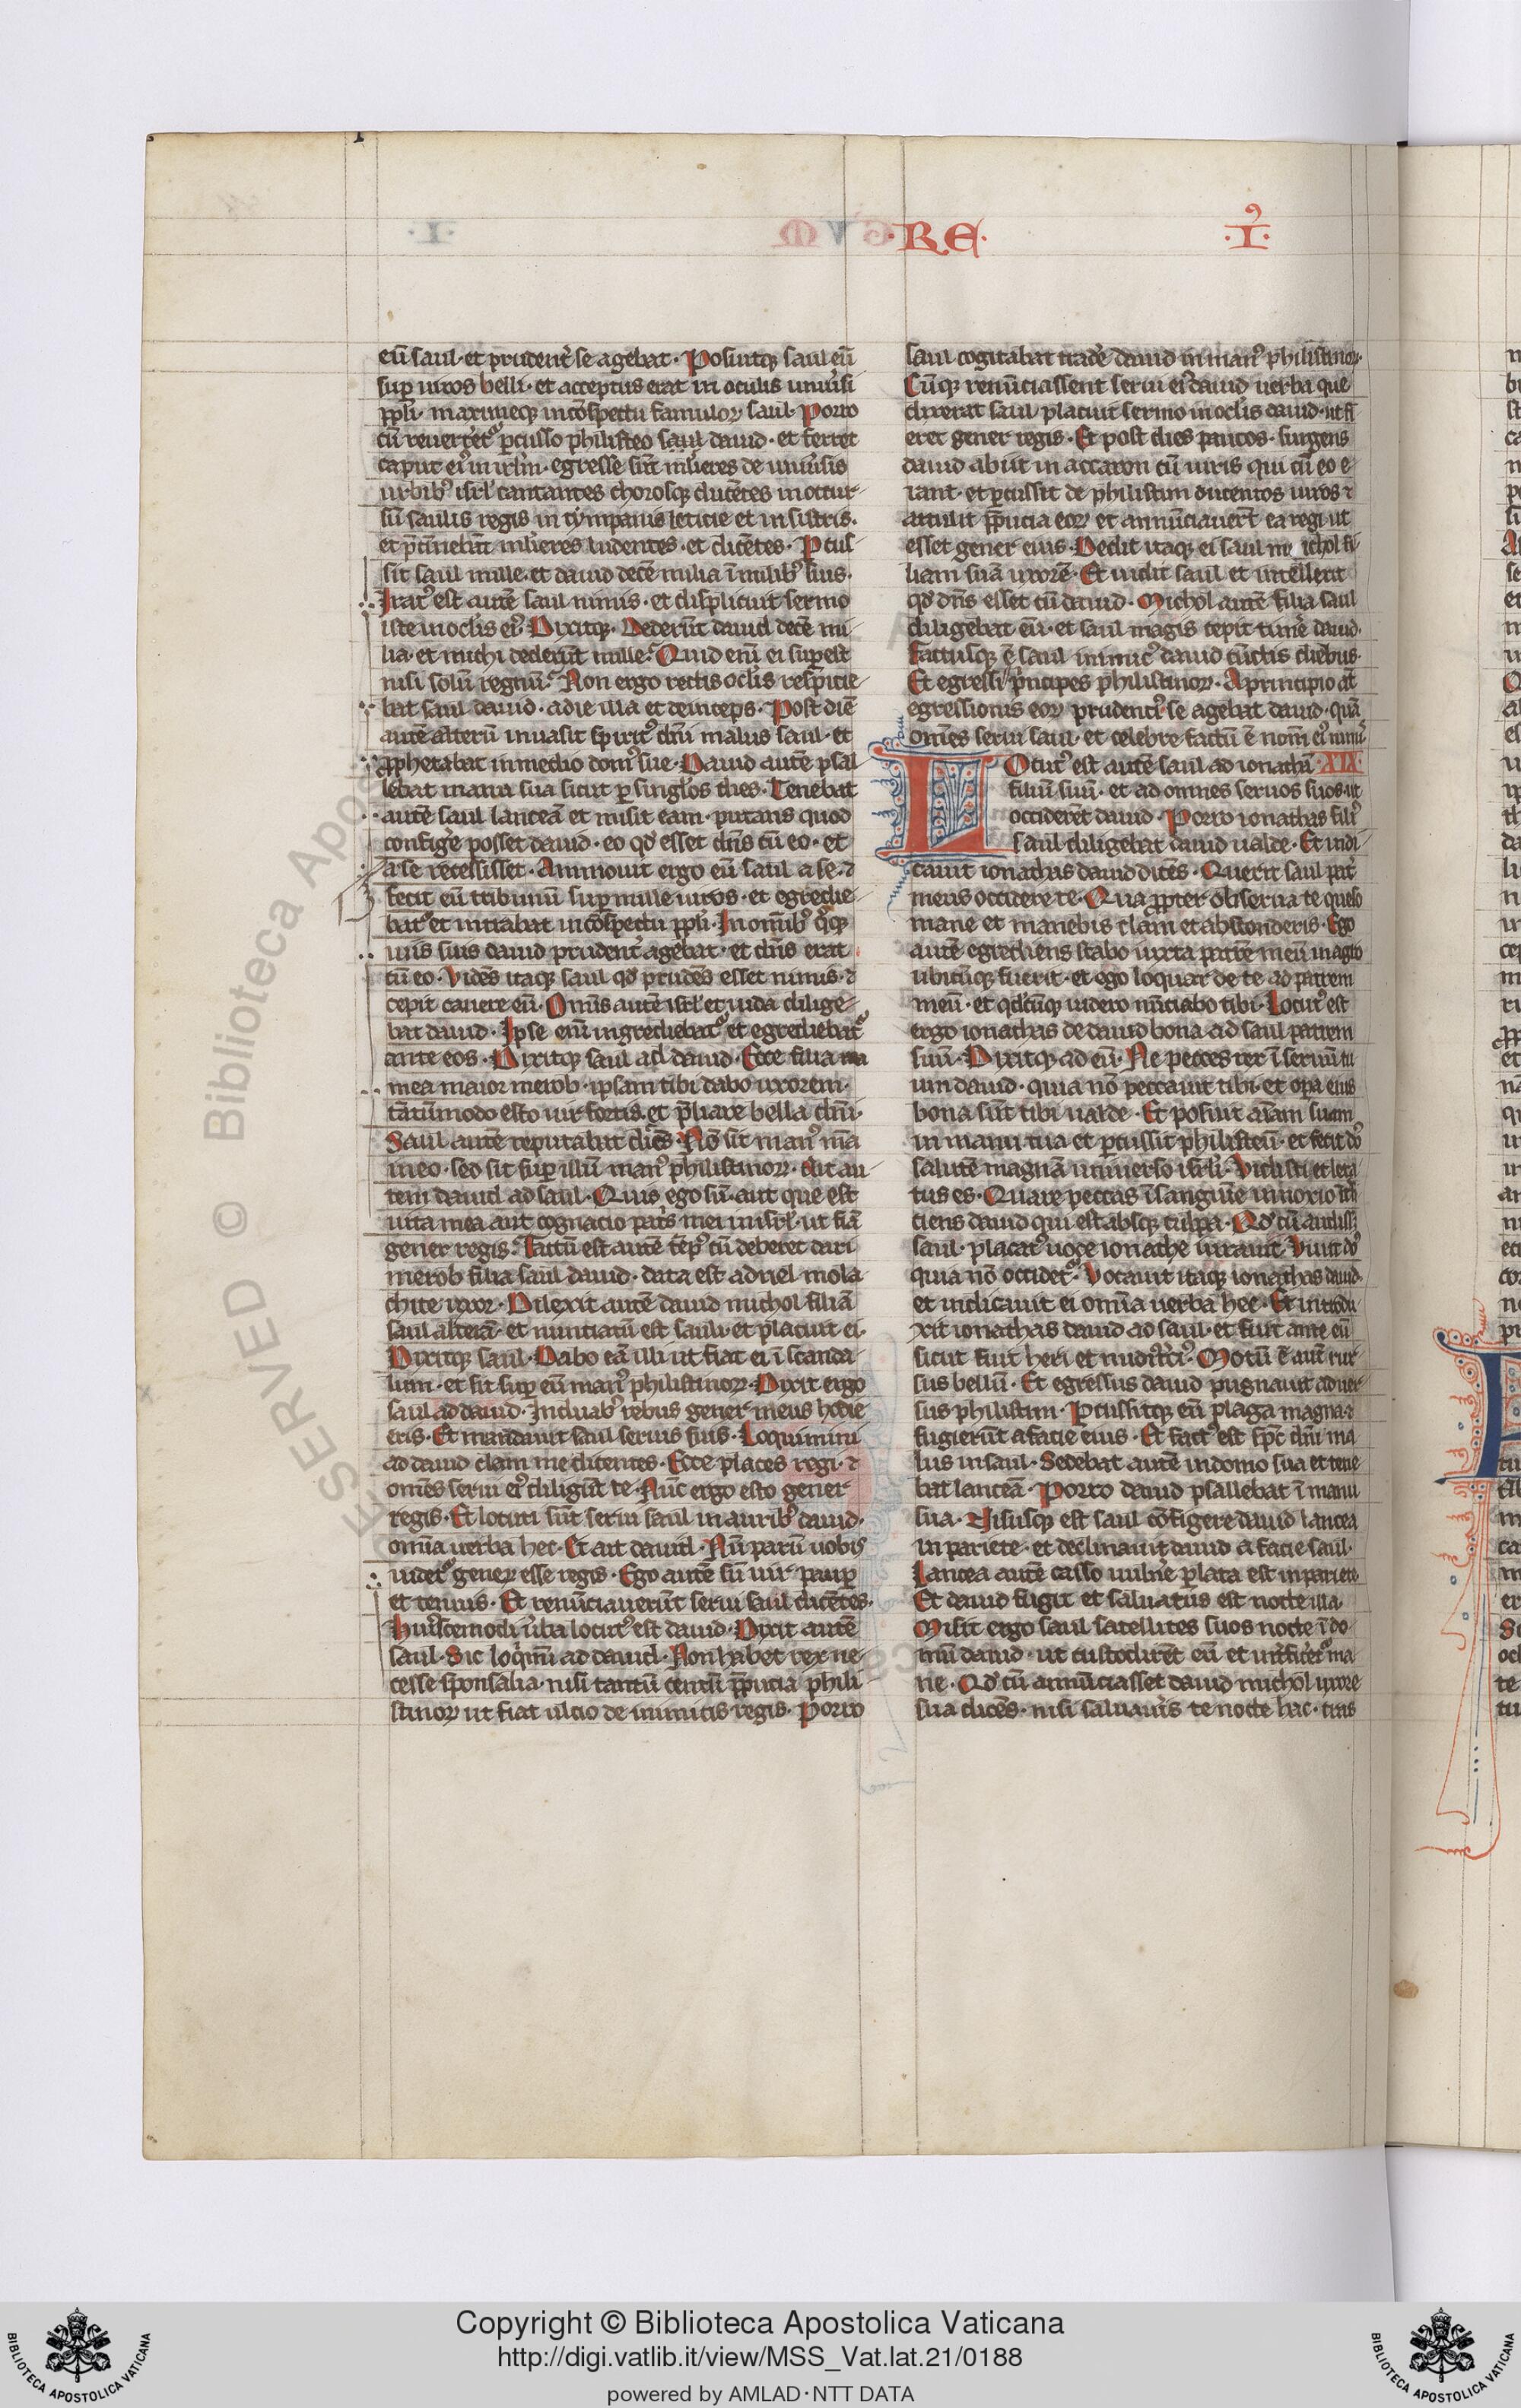 ·RE· ·I·
eū saul· et prudent̾ se agebat· Posuitqꝫ saul eū
suꝑ uiros belli· et acceptus erat in oculis uniu̾si
pp̄li· maximeqꝫ in cōspectu famuloꝝ saul· Porro
cū reuert̾et᷒ ꝑcusso philisteo saul dauid· et ferret
caput ei᷒ in irl̄m· egresse sūt ml̾ieres de uniu̾sis
urbib᷒ isrl̄ cantantes chorosqꝫ ducētes in occur-
sū saulis regis in tympanis leticie et in sistris·
et p̄cinebāt ml̾ieres ludentes· et dicētes· Pcus-
sit saul mille· et dauid decē milia ī milib᷒ suis·
Irat᷒ est autē saul nimis· et displicuit sermo
iste in oclis ei᷒· Dixitqꝫ· Dederūt dauid decē mi-
lia· et michi dederūt mille· Quid enī ei suꝑest
nisi solū regnū· Non ergo rectis oclis respicie-
bat saul dauid· a die illa et deinceps· Post diē
autē alterū inuasit spirit᷒ dn̄i malus saul· et
ꝓphetabat in medio dom᷒ sue· Dauid autē psal-
lebat manu sua sicut ꝑ singlos dies· Tenebat
autē saul lanceā et misit eam· putans quod
config̾e posset dauid· eo qd̾ esset dn̄s cū eo· et
a se recessisset· Ammouit ergo eū saul a se· ⁊
fecit eū tribunū suꝑ mille uiros· et egredie-
bat᷒ et intrabat in cōspectu pp̄li· In omīb᷒ q̄qꝫ
uiis suis dauid prudent̾ agebat· et dn̄s erat
cū eo· Vidēs itaqꝫ saul qd̾ prudēs esset nimis· ⁊
cepit cauere eū· Omīs autē isrl̄ et iuda dilige-
bat dauid· Ipse enī ingrediebat᷒ et egrediebat᷒
ante eos· Dixitqꝫ saul ad dauid· Ecce filia ma
mea maior merob· ipsam tibi dabo uxorem·
tātūmodo esto uir fortis· et p̄liare bella dn̄i·
Saul autē reputabat dicēs· Nō sit man᷒ m̄a
in eo· sed sit suꝑ illū man᷒ philistinoꝝ· Ait au-
tem dauid ad saul· Quis ego sū· aut que est
uita mea aut cognacio pat̾s mei in isrl̄· ut fiā
gener regis· Factū est autē tēp᷒ cū deberet dari
merob filia saul dauid· data est adriel mola-
thite uxor· Dilexit autē dauid michol filiā
saul alterā· et nuntiatū est sauli· et placuit ei·
Dixitqꝫ saul· Dabo eā illi ut fiat ei ī scanda-
lum· et sit suꝑ eū man᷒ philistinoꝝ· Dixit ergo
saul ad dauid· In duab᷒ rebus gener meus hodie
eris· Et mandauit saul seruis suis· Loquimini
ad dauid clam me dicentes· Ecce places regi· ⁊
omēs serui ei᷒ diligūt te· Nūc ergo esto gener
regis· Et locuti sūt serui saul in aurib᷒ dauid·
omīa uerba hec· Et ait dauid· Nū parū uobis
uidet᷒ generꝝ esse regis· Ego autē sū uir pauꝑ
et tenuis· Et renūciauerūt serui saul dicētes·
Hui᷒scemodi u̾ba locut᷒ est dauid· Dixit autē
saul· Sic loq̄mī ad dauid· Non habet rex ne-
cesse sponsalia· nisi tantū centū p̄pucia phili-
stinoꝝ ut fiat ulcio de inimicis regis· Porro
saul cogitabat trad̾e dauid in man᷒ philistinoꝝ·
Cūqꝫ renūciassent serui ei᷒ dauid uerba que
dixerat saul· placuit sermo in oclis dauid· ut fi-
eret gener regis· Et post dies paucos· surgens
dauid abiit in accaron cū uiris qui cū eo e-
rant· et ꝑcussit de philistim ducentos uiros ⁊
attulit p̄pucia eoꝝ et annūciauer̄t ea regi ut
esset gener eius· Dedit itaqꝫ ei saul michol fi-
liam suā uxorē· Et uidit saul et intellexit
qd̾ dn̄s esset cū dauid· Michol autē filia saul
diligebat eū· et saul magis cepit tim̾e dauid·
Factusqꝫ ē saul inimic᷒ dauid cūctis diebus·
Et egressi p̾ncipes philistinoꝝ· A principio at̄
egressionis eoꝝ prudenti᷒ se agebat dauid· quā
omēs serui saul· et celebre factū ē nom̄ ei᷒ nimi᷒
LOcut᷒ est autē saul ad ionathā ·XIX·
filiū suū· et ad omnes seruos suos· ut
occiderēt dauid· Porro ionathas fili᷒
saul diligebat dauid ualde· Et indi-
cauit ionathas dauid dicēs· Querit saul pat̾
meus occidere te· Qua ꝓpter obserua te queso
mane et manebis clam et absconderis· Ego
autē egrediens stabo iuxta patrē meū in agro
ubicūqꝫ fuerit· et ego loquar de te ad patrem
meū· et qd̾cūqꝫ uidero nūciabo tibi· Locut᷒ est
ergo ionathas de dauid bona ad saul patrem
suū· Dixitqꝫ ad eū· Ne pecces rex ī seruū tu
um dauid· quia nō peccauit tibi· et oꝑa eius
bona sūt tibi ualde· Et posuit aīam suam
in manu tua et ꝑcussit philisteū· et fecit dn̄s
salutē magnā uniuerso isrl̄i· Vidisti et leta-
tus es· Quare peccas ī sanguīe innoxio īt̾fi-
ciens dauid qui est absqꝫ culpa· Qd̾ cū audiss;
saul· placat᷒ uoce ionathe iurauit· Viuit dn̄s
quia nō occidet᷒· Vocauit itaqꝫ ionathas dauid·
et indicauit ei omīa uerba hec· Et introdu-
xit ionathas dauid ad saul· et fuit ante eū
sicut fuit heri et nudi᷒terci᷒· Motū ē aut̄ rur-
sus bellū· Et egressus dauid pugnauit aduer-
sus philistim· Pcussitqꝫ eū plaga magna· ⁊
fugierūt a facie eius· Et fact᷒ est sp̄c dn̄i ma-
lus in saul· Sedebat autē in domo sua et tene-
bat lanceā· Porro dauid psallebat ī manu
sua· Nisusqꝫ est saul cōfigere dauid lancea
in pariete· et declinauit dauid a facie saul·
Lancea autē casso uuln̾e ꝑlata est in pariete·
Et dauid fugit et saluatus est nocte illa·
Misit ergo saul satellites suos nocte ī do-
mū dauid· ut custodirēt eū et int̾ficet᷒ ma-
ne· Qd̾ cū annūciasset dauid michol uxore
sua dicēs· nisi saluau̾is te nocte hac· cras
Copyright © Biblioteca Apostolica Vaticana
http://digi.vatlib.it/view/MSS_Vat.lat.21/0188
powered by AMLAD·NTT DATA